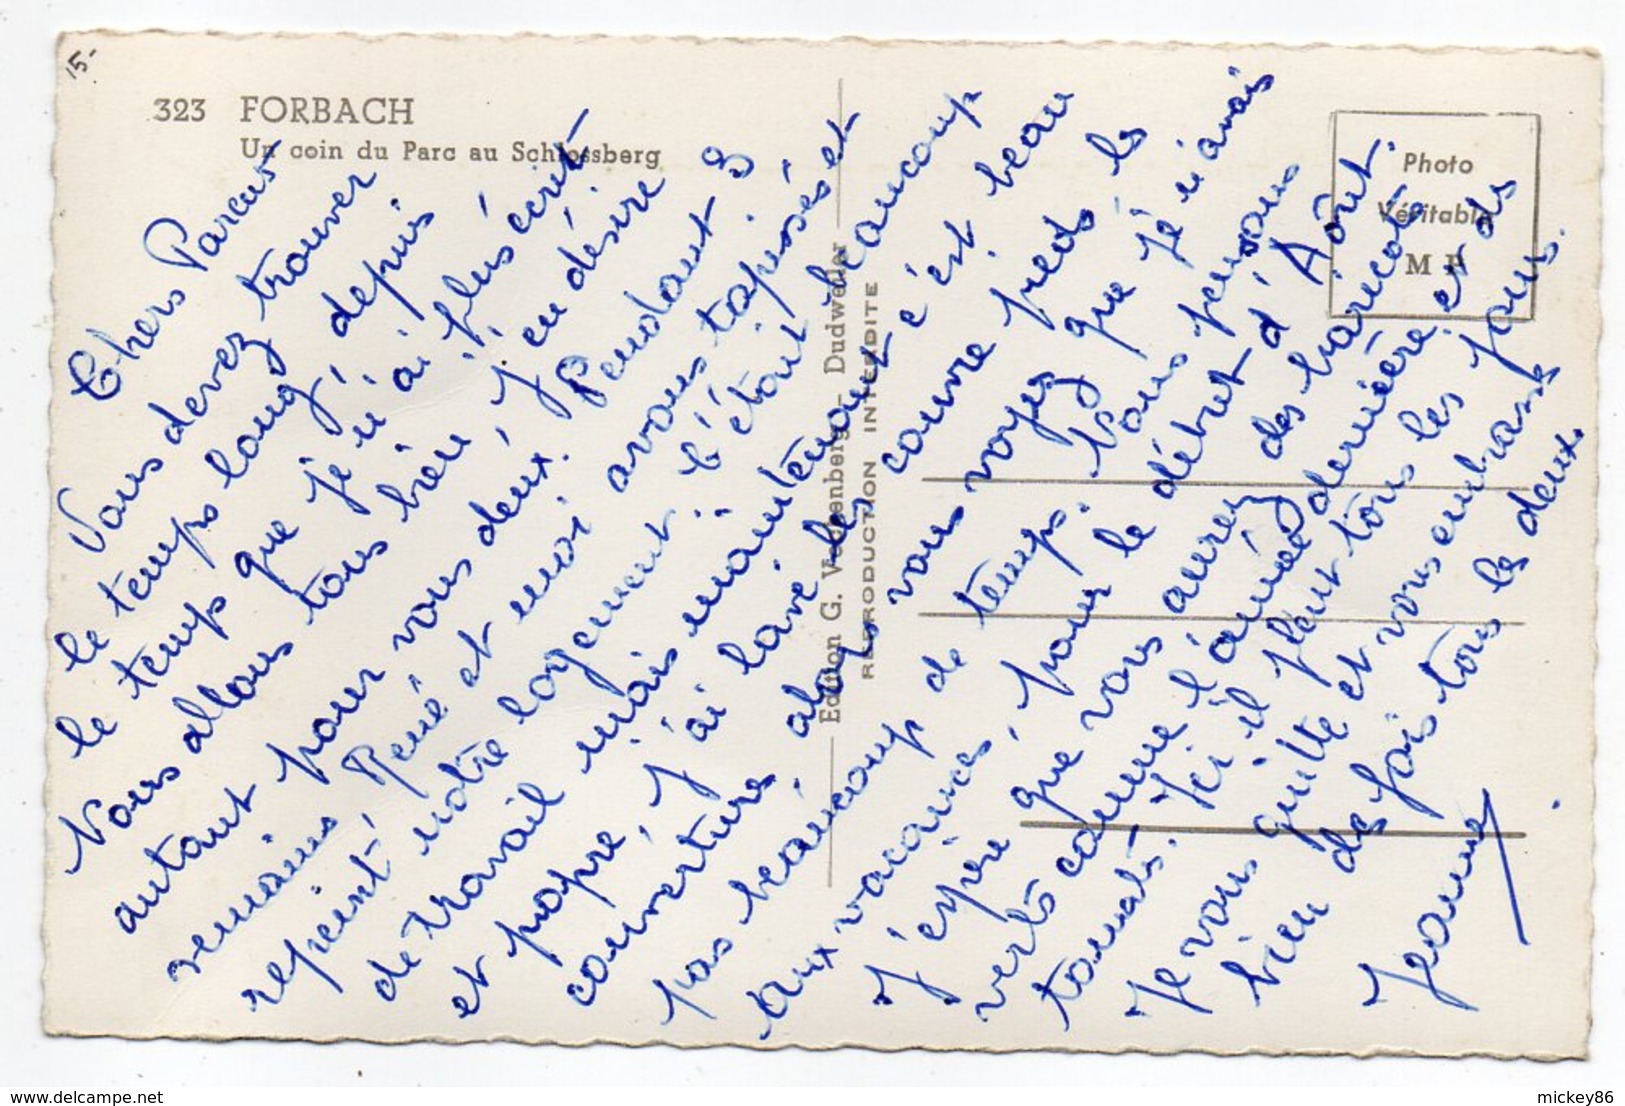 15-
323 FORBACH
Un coin du Parc au Schlossberg
Photo
Véritable
M
Edition G. Dudweiler
REPRODUCTION INTERDITE
Chers Parents
Vous devez trouver
le temps long, depuis
le temps que je n'ai plus écrit
Nous allons tous bien, j'en désire
autant pour vous deux. Pendant 3
semaines, René et moi avons tapissé et
repeint notre logement. C'était beaucoup
de travail mais maintenant c'est beau
et propre, j'ai lavé les couvre pieds, les
couvertures, alors vous voyez que je n'avais
pas beaucoup de temps. Nous pensons
aux vacances, pour le début d'Aôut.
J'espère que vous aurez des haricots
verts comme l'année dernière et ds
tomates. Ici il pleut tous les jours.
Je vous quitte et vous embrasse
bien des fois tous les deux.
Jeanne
delcampe.net
mickey86